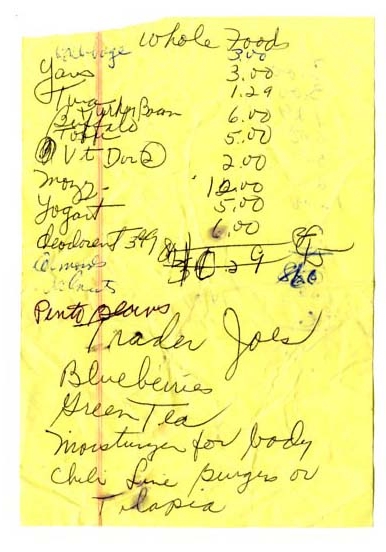 Whole Foods
Cabbage 3.00
Yams 3.00
Tuna 1.29
Turkey Bacon
Buffalo 6.00
Tofu 5.00
Vt D 2 2.00
Mozz. 12.00
Yogart 5.00
Deodorent 349 6.00
Almonds 29
Pinto beans
Trader Joes
Blueberries
Green Tea
Moisturizer for body
Chili Lime Burgers or
Tilapia